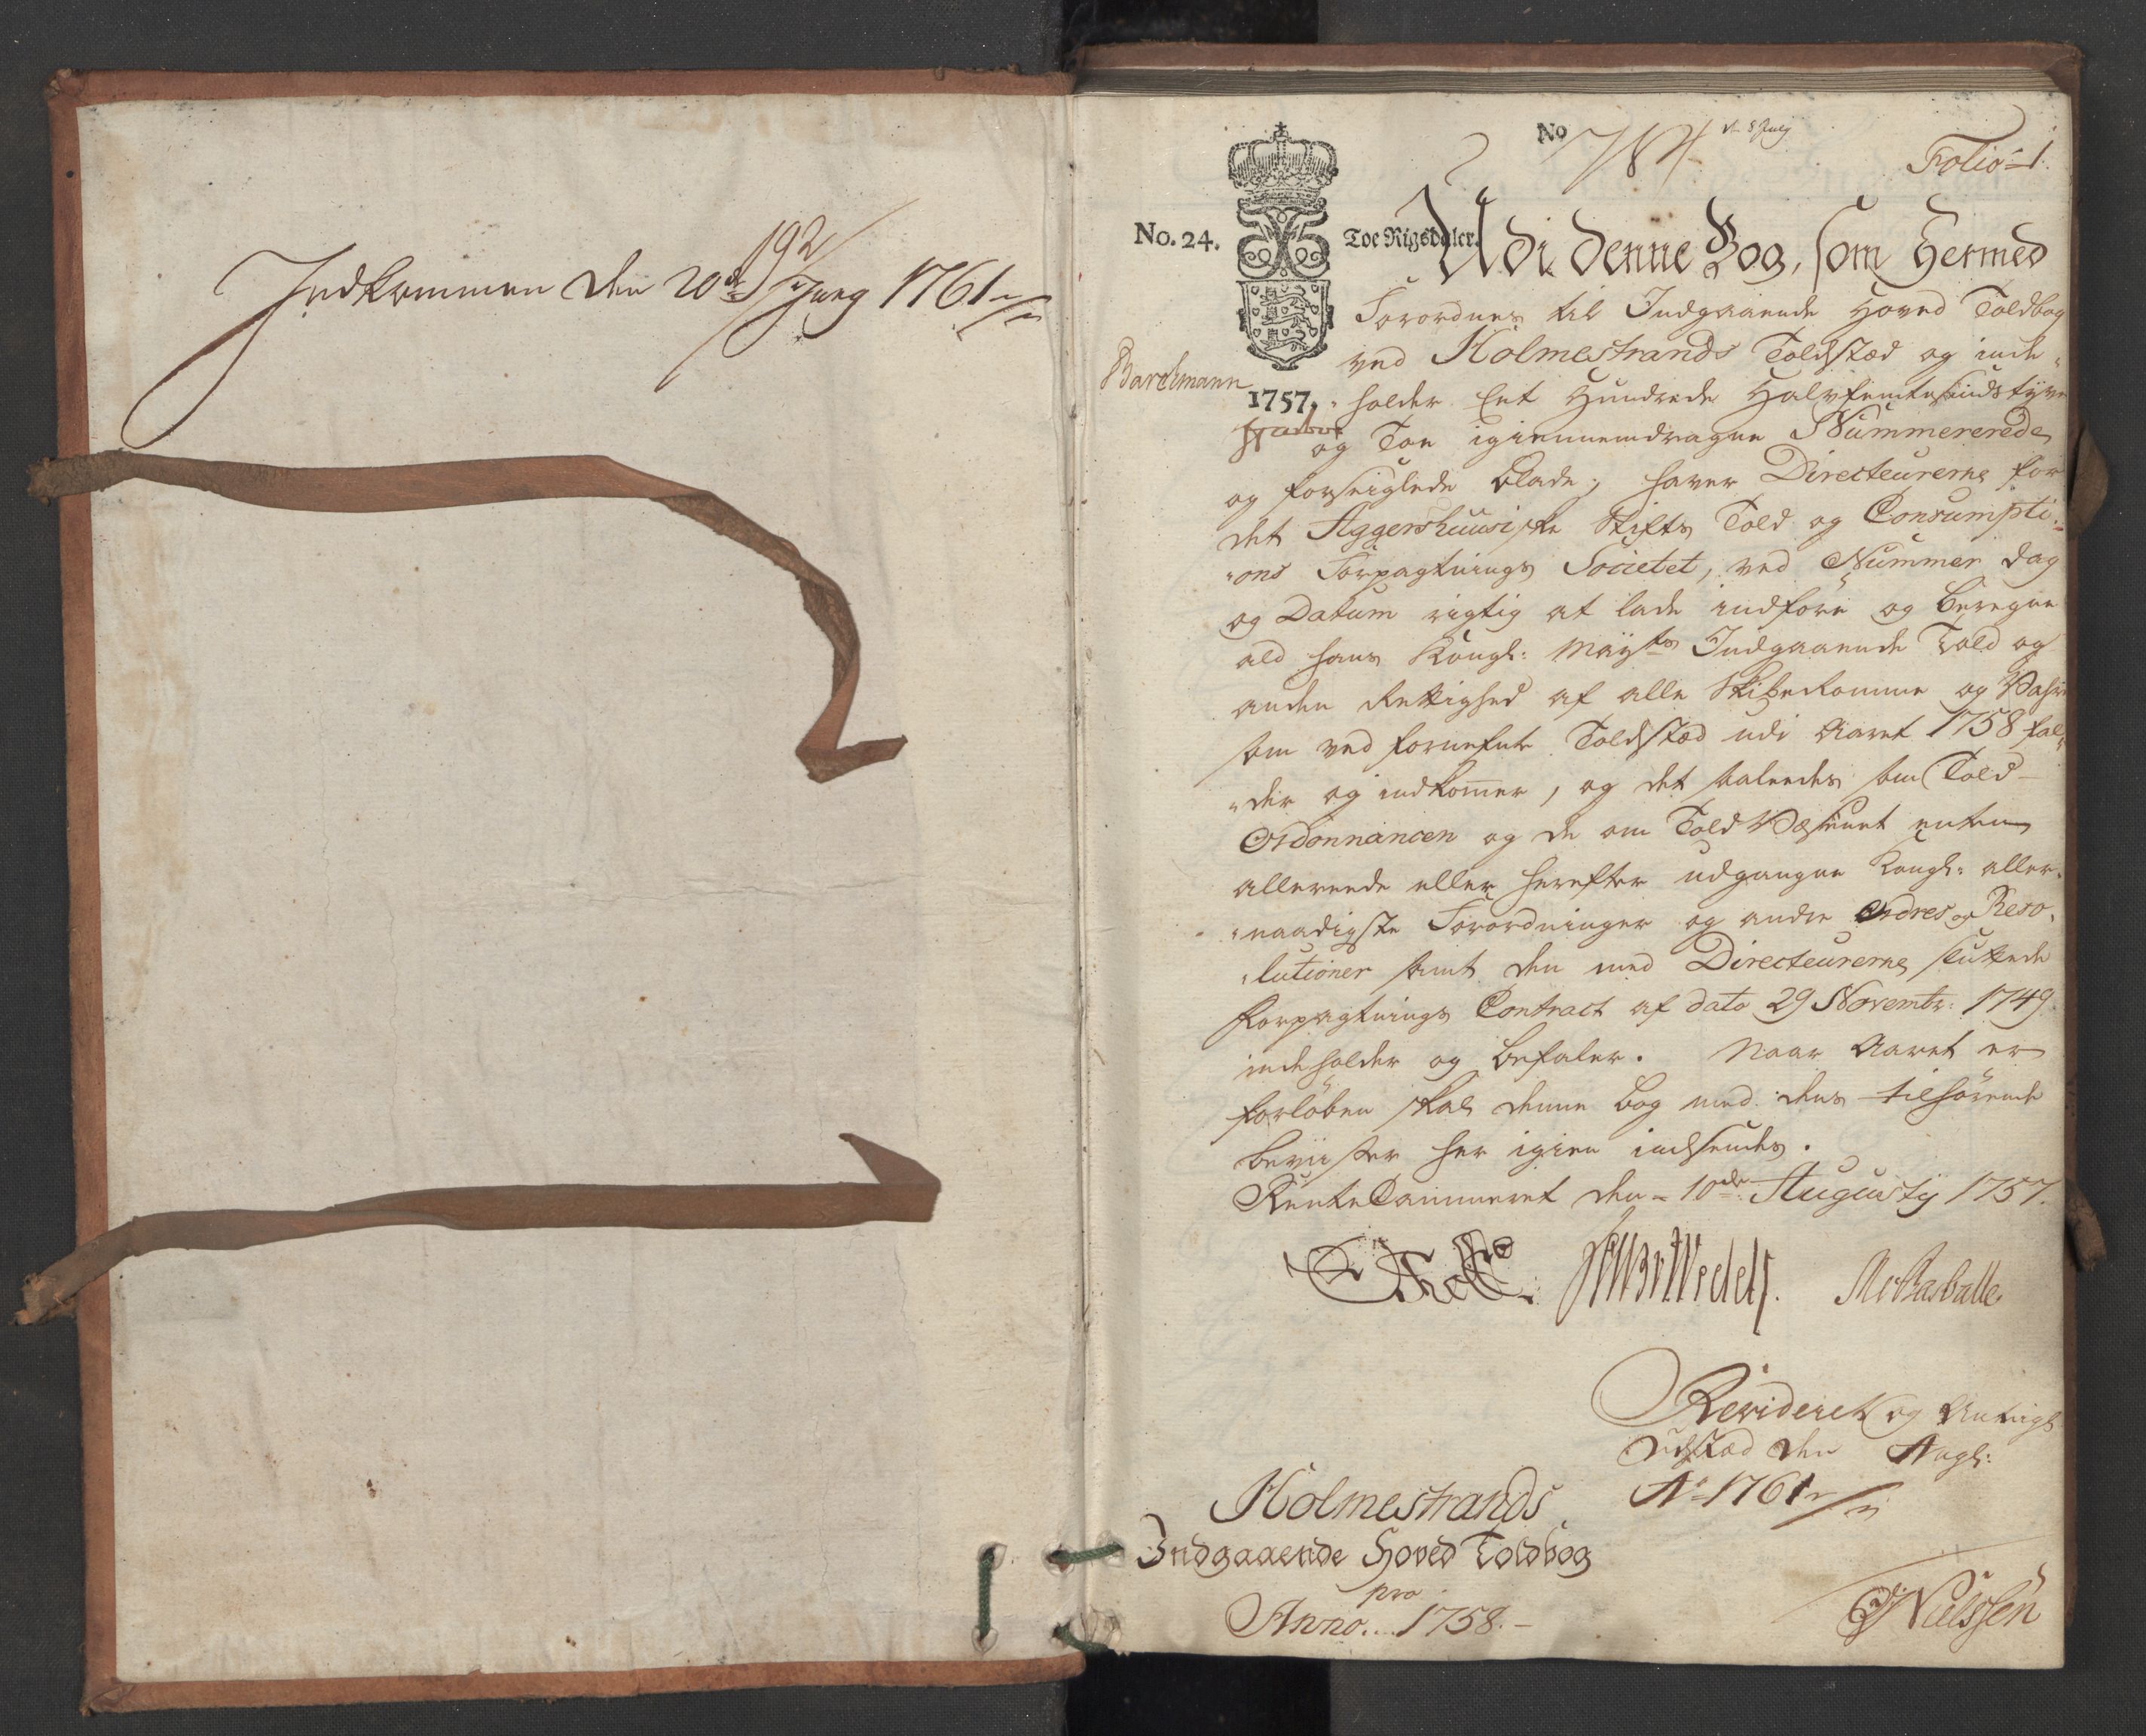 192
Indkommen den 20de Juny 1761
No 784
Folio 1.
No. 24. Toe Rigsdaler.
Udi denne Bog, som Hermed
Forordnes til Indgaaende Hoved Toldbog
ved Holmestrands Toldsted og inde-
Barchmann
1757.
holder Eet Hundrede Halvfemtesindstyve
og Toe igiennemdragne Nummererede
og forseiglede Blade; haver Directeurerne for
det Aggershuusiske Stifts Told og Consumpti-
ons Forpagtnings Societet, ved Nummer Dag
og Datum rigtig at lade indføre og beregne
ald hans Kongl: Mayts Indgaaende Told og
anden Rettighed af alle Skibe komme og Vahre
som ved fornefnte Toldsted udi Aaret 1758 fal-
der og indkommer, og det saaledes som Told
Ordonnancen og de om Told Væsenet enten
allereede eller herefter udgangne Kongl: aller-
naadigste Forordninger og andre Ordres og Reso-
lutioner samt den med Directeurerne sluttede
Forpagtnings Contract af dato 29 Novembr: 1749
indeholder og befaler. Naar Aaret er
forløben skal denne bog med dens tilhørende
beviister her igien indsendes.
RenteCammeret den 10de Augusty 1757.
Revideret og Antegn
udsted den Augl:
Ao 1761
Holmestrands
Indgaaende Hoved Toldbog
pro
Anno 1758.
Nielssen